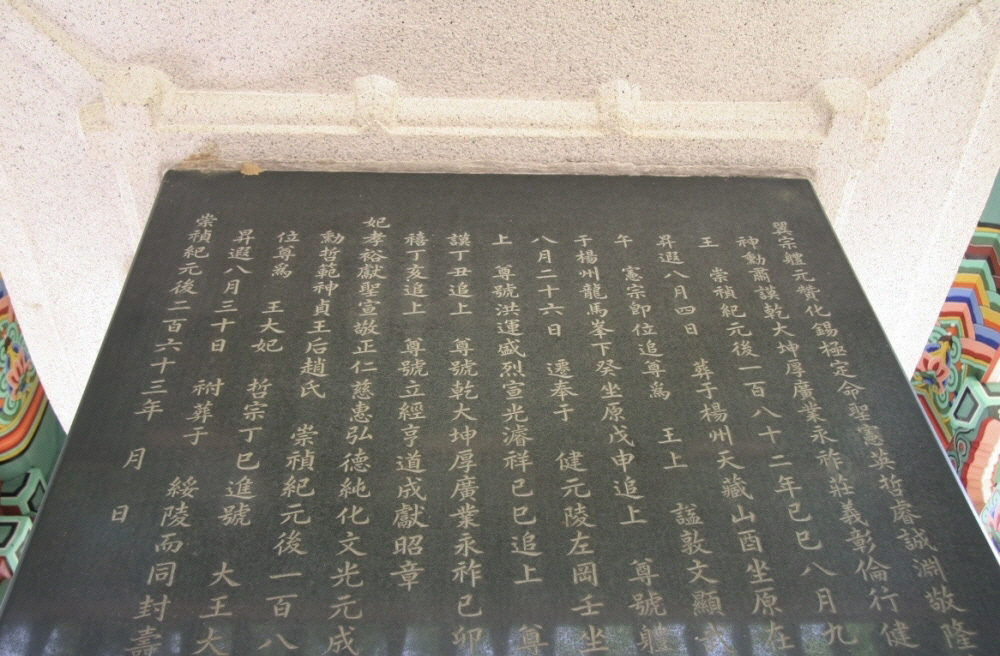 翼宗體元贊化錫極定命聖憲英哲睿誠淵敬隆
神勳肅謨乾大坤厚廣業永祚莊義彰倫行健
王 崇禎紀元後一百八十二年己巳八月九
昇遐八月四日 葬于楊州天藏山酉坐原在
午 憲宗卽位追尊爲 王上 諡敦文顯武
于楊州龍馬峯下癸坐原戊申追上 尊號體
八月二十六日 遷奉于 健元陵左岡壬坐
上 尊號洪運盛烈宣光濬祥己巳追上 尊
謨丁丑追上 尊號乾大坤厚廣業永祚己卯
禧丁亥追上 尊號立經亨道成獻昭章
妃孝裕獻聖宣敬正仁慈惠弘德純化文光元成
勳哲範神貞王后趙氏 崇禎紀元後一百八
位尊爲 王大妃 哲宗丁巳進號 大王大
昇遐八月三十日 祔葬于 綏陵而同封壽
崇禎紀元後二百六十三年 月 日